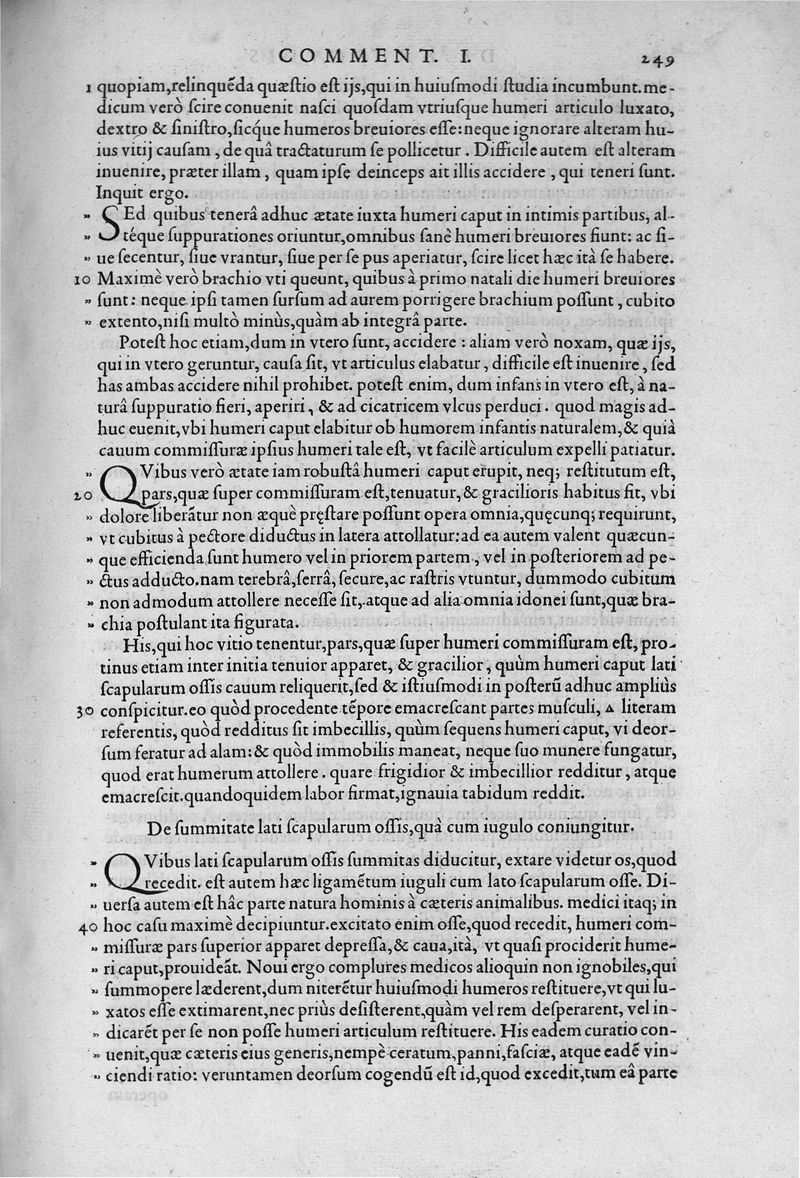 COMMENT. I. 249
1 quopiam,relinquẽda quæſtio eſt ijs,qui in huiuſmodi ſtudia incumbunt.me-
dicum verò ſcire conuenit naſci quoſdam vtriuſque humeri articulo luxato,
dextro & ſiniſtro,ſicq́ue humeros breuiores eſſe:neque ignorare alteram hu-
ius vitij cauſam , de quâ tractaturum ſe pollicetur . Difficile autem eſt alteram
inuenire, præter illam , quam ipſe deinceps ait illis accidere , qui teneri ſunt.
Inquit ergo.
" SEd quibus tenerâ adhuc ætate iuxta humeri caput in intimis partibus, al-
" téque ſuppurationes oriuntur,omnibus ſanè humeri breuiores fiunt: ac ſi-
" ue ſecentur, ſiue vrantur, ſiue per ſe pus aperiatur, ſcire licet hæc ità ſe habere.
10 Maximè verò brachio vti queunt, quibus à primo natali die humeri breuiores
" ſunt: neque ipſi tamen ſurſum ad aurem porrigere brachium poſſunt , cubito
" extento,niſi multò minùs,quàm ab integrâ parte.
Poteſt hoc etiam,dum in vtero ſunt, accidere : aliam verò noxam, quæ ijs,
qui in vtero geruntur, cauſa ſit, vt articulus elabatur , difficile eſt inuenire , ſed
has ambas accidere nihil prohibet. poteſt enim, dum infans in vtero eſt, à na-
turâ ſuppuratio fieri, aperiri, & ad cicatricem vlcus perduci. quod magis ad-
huc euenit,vbi humeri caput elabitur ob humorem infantis naturalem,& quià
cauum commiſſuræ ipſius humeri tale eſt, vt facilè articulum expelli patiatur.
" QVibus verò ætate iam robuſtâ humeri caput erupit, neq; reſtitutum eſt,
20 pars,quæ ſuper commiſſuram eſt,tenuatur,& gracilioris habitus fit, vbi
" dolore liberãtur non æquè pręſtare poſſunt opera omnia,quęcunq; requirunt,
" vt cubitus à pectore diductus in latera attollatur:ad ea autem valent quæcun-
" que efficienda ſunt humero vel in priorem partem , vel in poſteriorem ad pe-
" ctus adducto.nam terebrâ,ſerrâ, ſecure,ac raſtris vtuntur, dummodo cubitum
" non admodum attollere neceſſe ſit, atque ad alia omnia idonei ſunt,quæ bra-
" chia poſtulant ita figurata.
His,qui hoc vitio tenentur,pars,quæ ſuper humeri commiſſuram eſt, pro-
tinus etiam inter initia tenuior apparet, & gracilior , quùm humeri caput lati
ſcapularum oſſis cauum reliquerit,ſed & iſtiuſmodi in poſterũ adhuc ampliùs
30 conſpicitur.eo quòd procedente tẽpore emacreſcant partes muſculi, ▵ literam
referentis, quòd redditus ſit imbecillis, quùm ſequens humeri caput, vi deor-
ſum feratur ad alam:& quòd immobilis maneat, neque ſuo munere fungatur,
quod erat humerum attollere . quare frigidior & imbecillior redditur , atque
emacreſcit.quandoquidem labor firmat,ignauia tabidum reddit.
De ſummitate lati ſcapularum oſſis,quà cum iugulo coniungitur.
" QVibus lati ſcapularum oſſis ſummitas diducitur, extare videtur os,quod
" recedit. eſt autem hæc ligamẽtum iuguli cum lato ſcapularum oſſe. Di-
" uerſa autem eſt hâc parte natura hominis à cæteris animalibus. medici itaq; in
40 hoc caſu maximè decipiuntur.excitato enim oſſe,quod recedit, humeri com-
" miſſuræ pars ſuperior apparet depreſſa,& caua,ità, vt quaſi prociderit hume-
" ri caput,prouideãt. Noui ergo complures medicos alioquin non ignobiles,qui
" ſummopere læderent,dum niterẽtur huiuſmodi humeros reſtituere,vt qui lu-
" xatos eſſe extimarent,nec priùs deſiſterent,quàm vel rem deſperarent, vel in-
" dicarẽt per ſe non poſſe humeri articulum reſtituere. His eadem curatio con-
" uenit,quæ cæteris eius generis,nempè ceratum,panni,faſciæ, atque eadẽ vin-
" ciendi ratio: veruntamen deorſum cogendũ eſt id,quod excedit,tum eâ parte